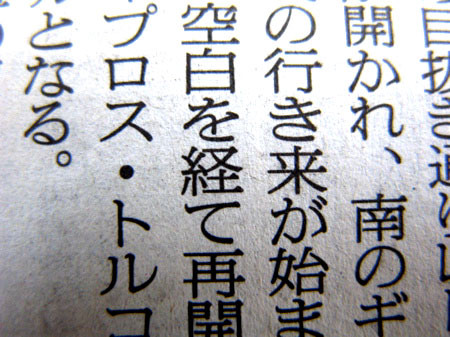 目抜き通り
開かれ、南のギ
の行き来が始ま
空白を経て再開
プロス・トルコ
となる。